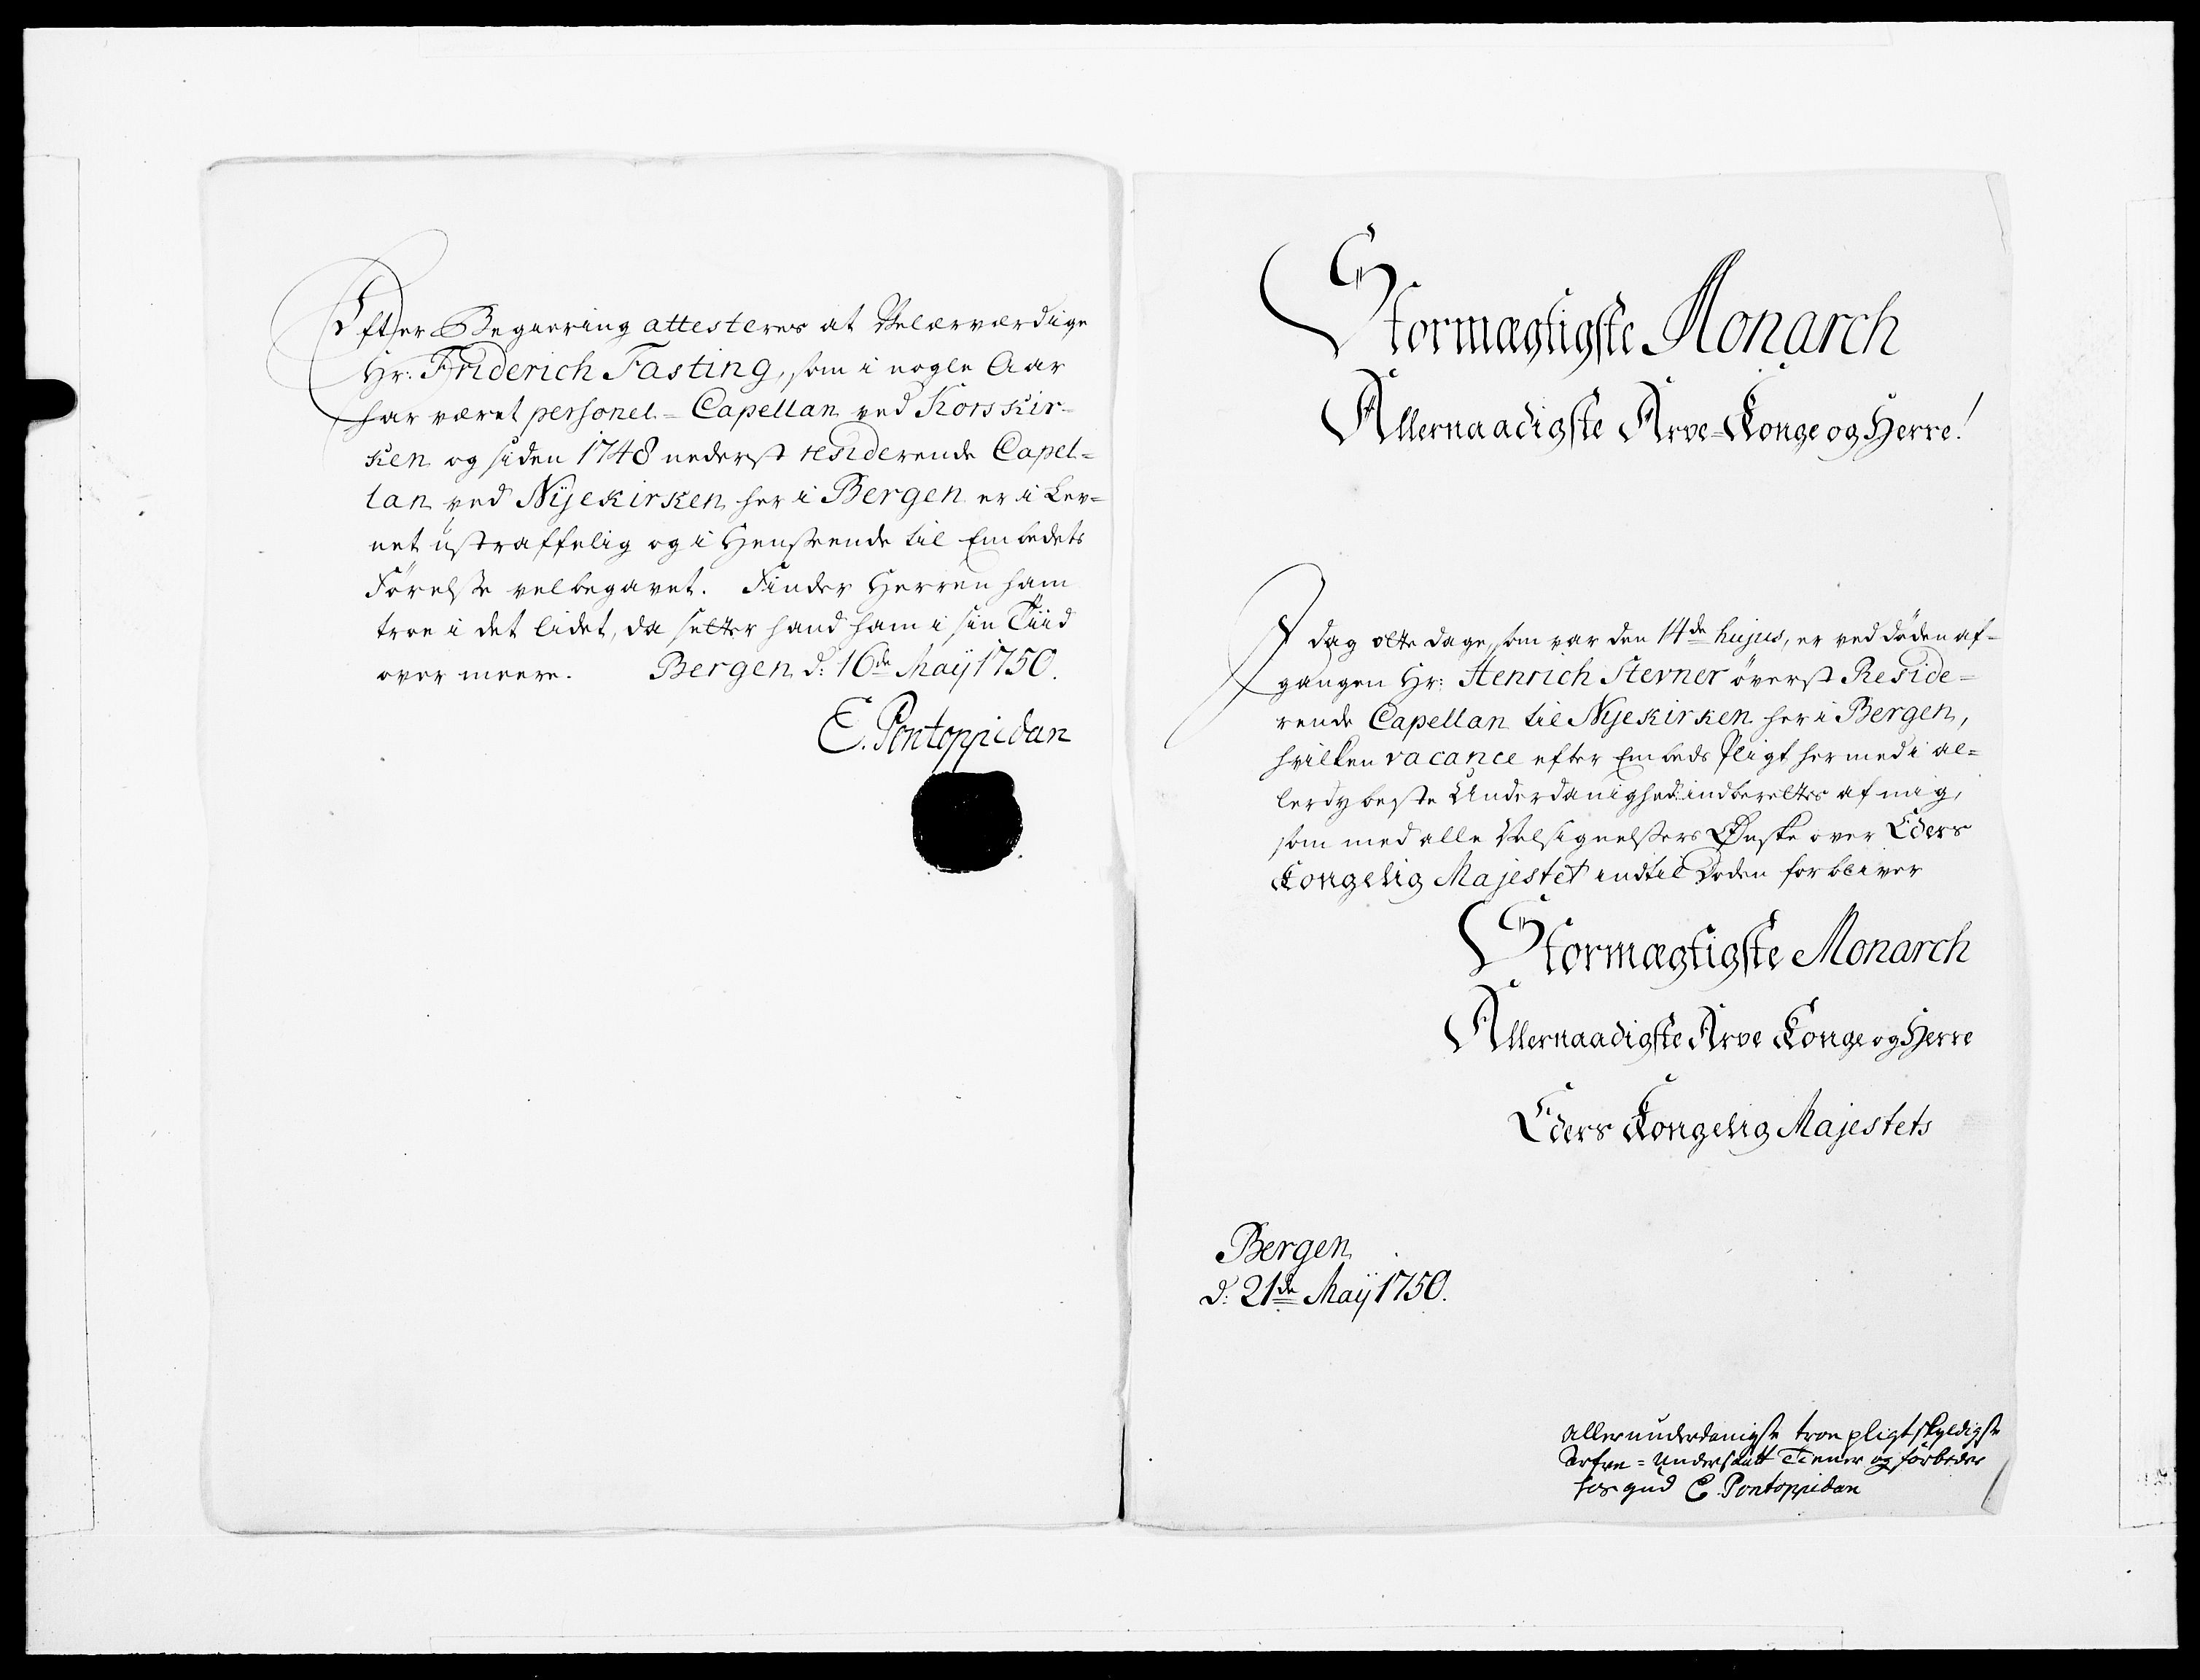 Efter Begiering attesteres at Velærværdige
Hr: Friderich Fasting, som i nogle Aar
har været personel=Capellan ved Korskir-
ken og siden 1748 nederst residerende Capel=
lan ved Nyekirken her i Bergen er i Lev=
net ustraffelig og i Henseende til Embedets
Førelse velbegavet. Finder Herren ham
troe i det lidet, da setter hand ham i sin Tiid
over meere. Bergen d: 16de Maij 1750.
E. Pontoppidan
Stormægtigste Monarch
Allernaadigste Arve=Konge og Herre!
I dag otte dage, som var den 14de hujus, er ved døden af-
gangen Hr: Henrich Sterner øverst Reside=
rende Capellan til Nyekirken her i Bergen,
hvilken vacance efter Embeds Pligt hermed i al=
lerdybeste Underdanighed indberettes af mig,
som med alle Velsignelsers Ønske over Eders
Kongelig Majestet indtil Døden forbliver
Stormægtigste Monarch
Allernaadigste Arve Konge og Herre
Eders Kongelig Majestets
Bergen
d: 21de Maij 1750.
allerunderdanigste troe pligtskyldigste
Arfve=Undersaatt Tiener og forbeder
hos gud E. Pontoppidan